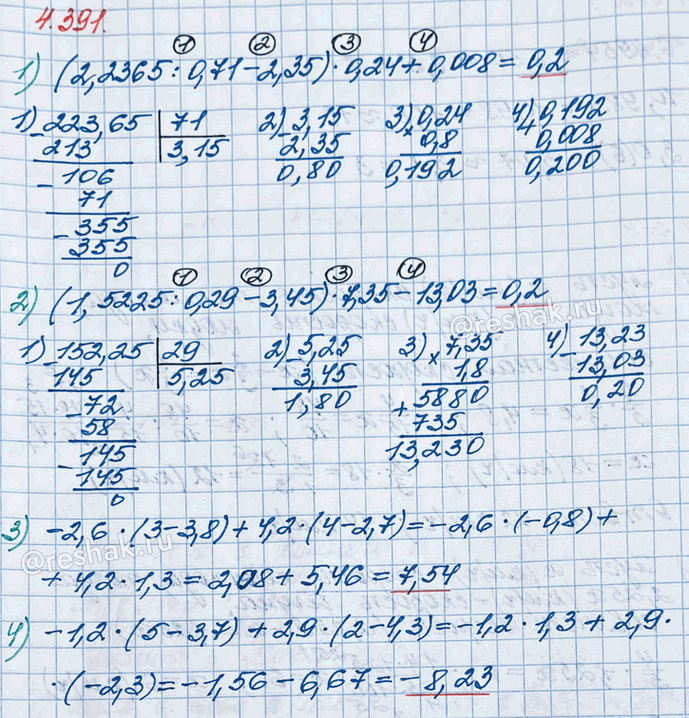 4.391.
1 2 3 4
1) (2,2365 : 0,71 - 2,35) · 0,24 + 0,008 = 0,2
1) 223,65 | 71 2) 3,15 3) 0,24 4) 0,192
- 213 | 3,15 - 2,35 × 0,8 + 0,008
- 106 0,80 0,192 0,200
71
- 355
355
0
1 2 3 4
2) (1,5225 : 0,29 - 3,45) · 7,35 - 13,03 = 0,2
1) 152,25 | 29 2) 5,25 3) × 7,35 4) 13,23
- 145 | 5,25 - 3,45 1,8 - 13,03
- 72 1,80 + 5880 0,20
58 735
- 145 13,230
145
0
3) -2,6 · (3 - 3,8) + 4,2 · (4 - 2,7) = -2,6 · (-0,8) +
+ 4,2 · 1,3 = 2,08 + 5,46 = 7,54
4) -1,2 · (5 - 3,7) + 2,9 · (2 - 4,3) = -1,2 · 1,3 + 2,9 ·
· (-2,3) = -1,56 - 6,67 = -8,23
@reshak.ru
@reshak.ru